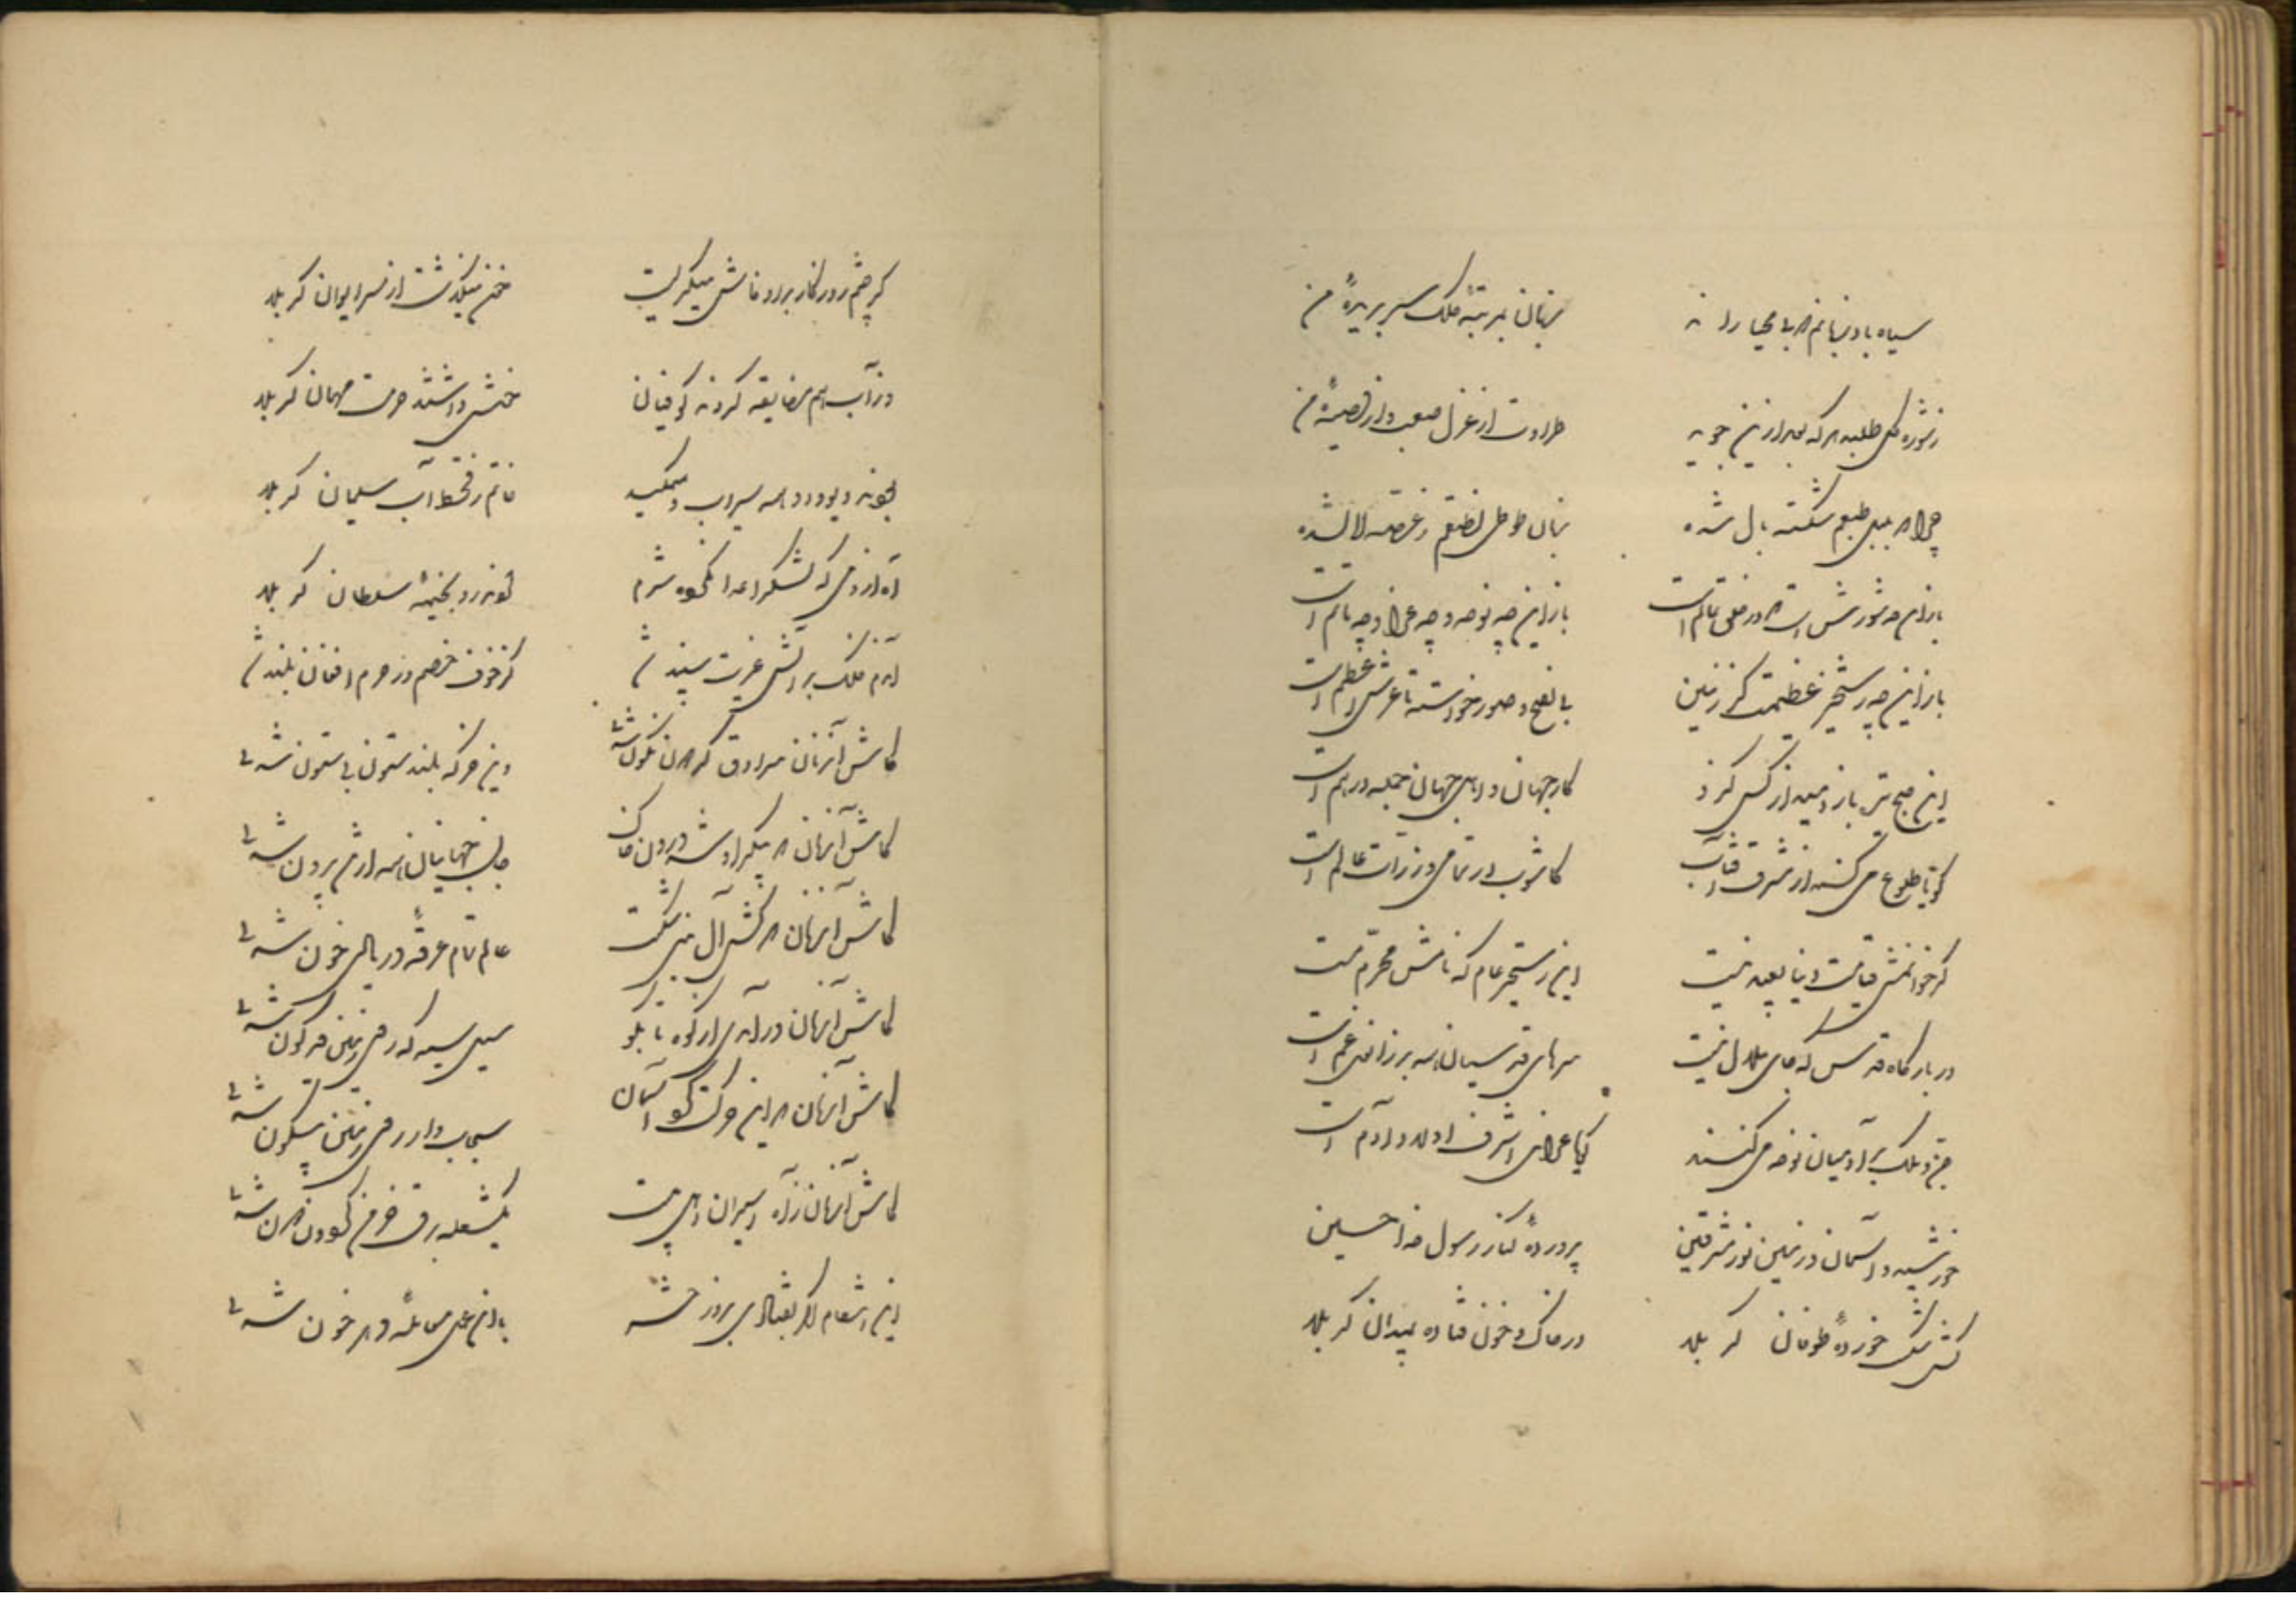 سیاه باد زبانم را نه زبان بمرتبه کلک سر بریدهٔ من
ز شوره گل طلبد هر که بعد ازین جوید طراوت از غزل صعب و از قصیدهٔ من
چرا که بلبل طبعم شکسته بال شده زبان طوطی نطقم ز غصه لال شده
باز این چه شورش است که در خلق عالم است باز این چه نوحه و چه عزا و چه ماتم است
باز این چه رستخیز عظیمت کز زمین بی نفخ صور خواسته تا عرش اعظم است
این صبح تیره باز دمید از کزو کار جهان و اهل جهان جمله درهم است
گویا طلوع می کند از مشرق آفتاب کاشوب در تمامی ذرات عالم است
گر خوانمش قیامت دنیا بعید نیست این رستخیز عام که نامش محرم است
در بارگاه قدس که جای ملال نیست سرهای قدسیان همه بر زانوی غم است
جن و ملک بر آدمیان نوحه می کنند گویا عزای اشرف اولاد آدم است
خورشید آسمان و زمین نور مشرقین پروردهٔ کنار رسول خدا حسین
کشتی شکست خوردهٔ طوفان کربلا در خاک و خون فتاده بمیدان کربلا
گر چشم روزگار برو فاش میگریست خون میگذشت از سر ایوان کربلا
از آب هم مضایقه کردند کوفیان خوش داشتند حرمت مهمان کربلا
بودند دیو و دد همه سیراب و میمکید خاتم ز قحط آب سلیمان کربلا
آه از دمی که لشکر اعدا نکرده شرم کردند رو بخیمهٔ سلطان کربلا
آندم فلک بر آتش غیرت سپند شد کز خوف خصم در حرم افغان بلند شد
کاش آنزمان سرادق گردون نگون شدی وین خرگه بلند ستون بی ستون شدی
کاش آنزمان که پیکر او شد درون خاک جان جهانیان همه از تن برون شدی
کاش آنزمان که کشتی آل نبی شکست عالم تمام غرقهٔ دریای خون شدی
کاش آنزمان در آمدی از کوه تا بکوه سیل سیه که روی زمین قیرگون شدی
کاش آنزمان که این حرکت کرد آسمان سیماب وار روی زمین بیسکون شدی
کاش آنزمان ز آه اسیران اهل بیت یکشعله برق خرمن گردون دون شدی
این انتقام گر نفتادی بروز حشر با این عمل معاملهٔ دهر چون شدی